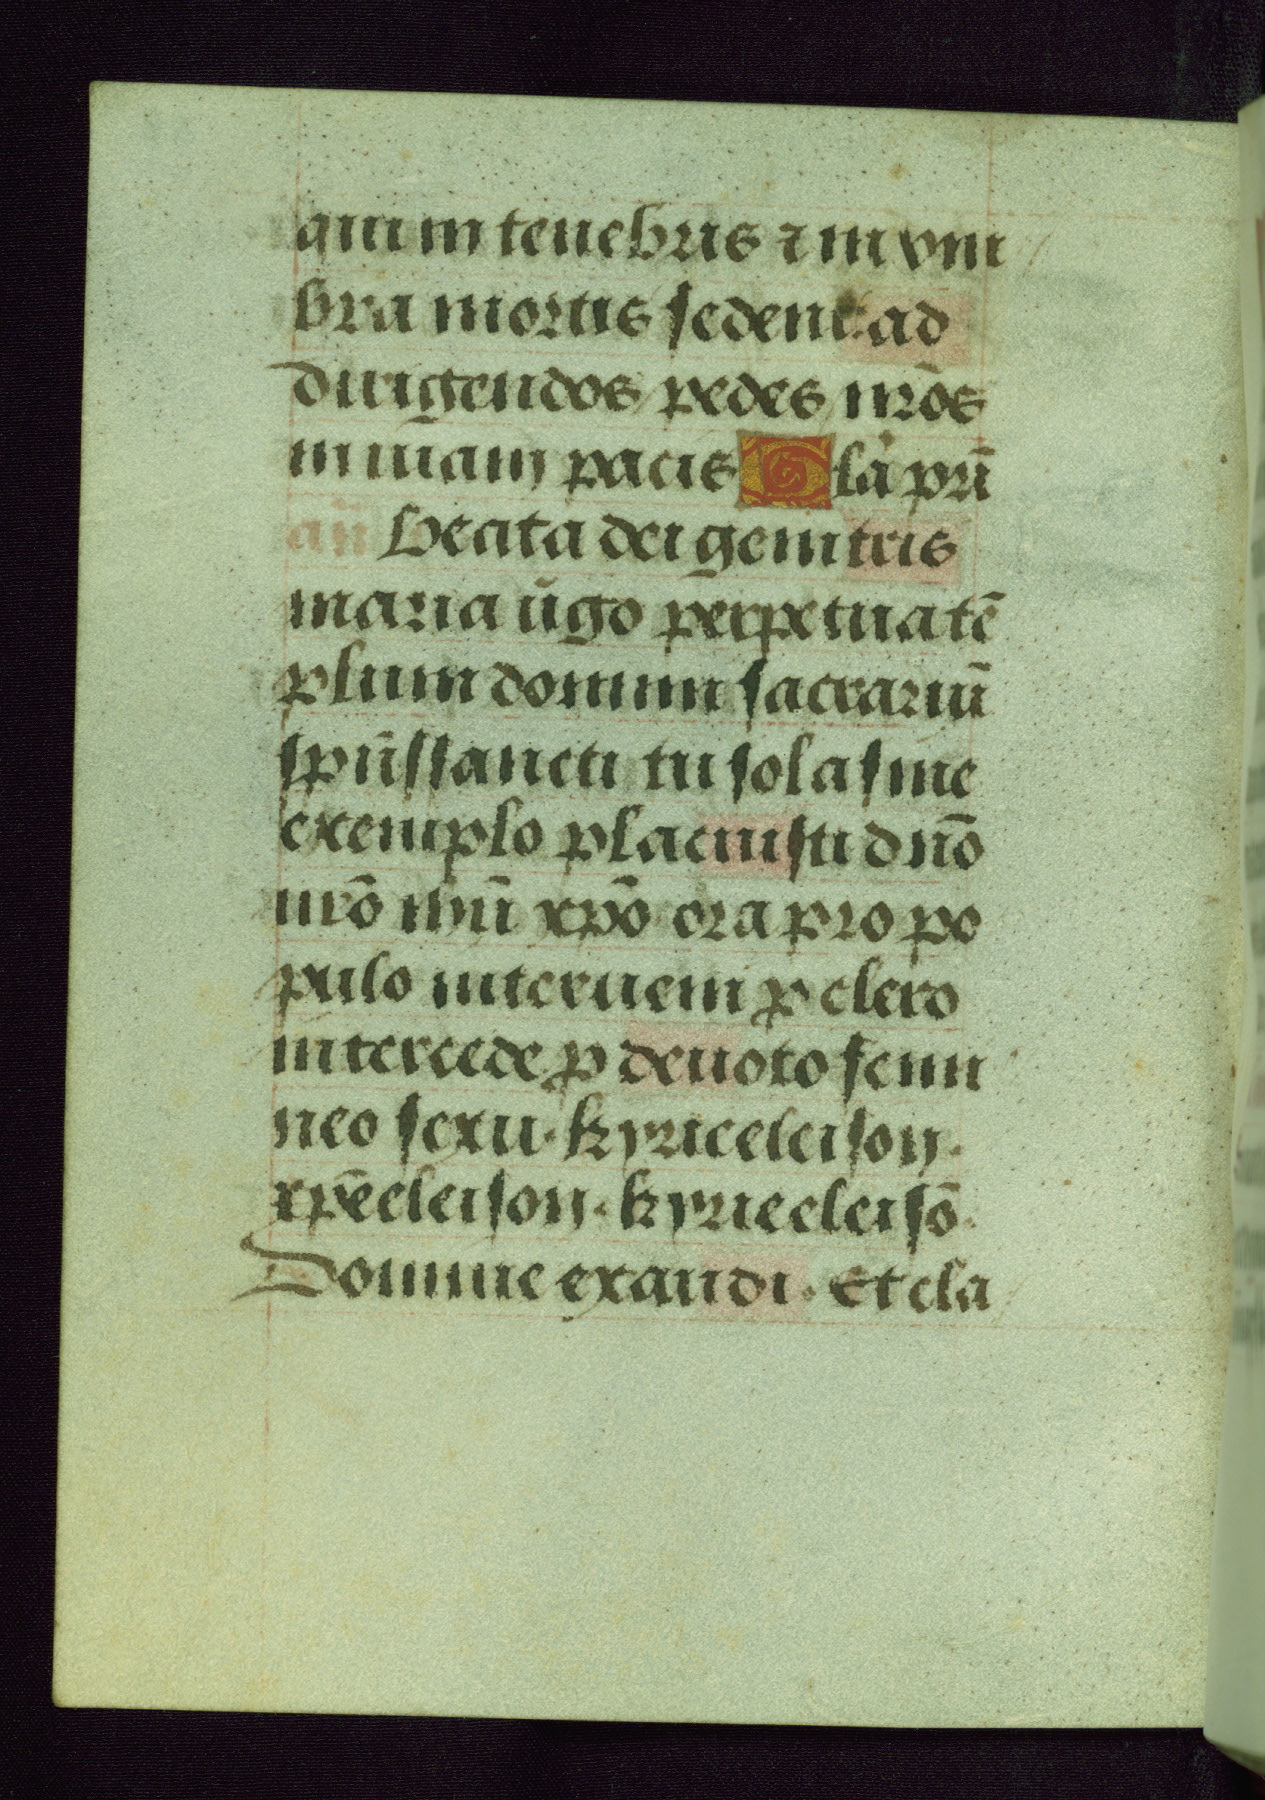 qui in tenebris ⁊ in vm
bra mortis sedent ad
dirigendos pedes nr̄os
in uiam pacis Gła pr̄i
an̄ Beata dei genitris
maria u̅go perpetua tē
plum domini sacrariū
spūs sancti tu sola sine
exemplo placuisti dn̄o
nr̄o ihū xp̄o ora pro po
pulo interueni ꝓ clero
intercede ꝓ deuoto femi
neo sexu · kyrieleison ·
xp̄eeleison · kyrieeleisō ·
Domine exaudi · Et cla